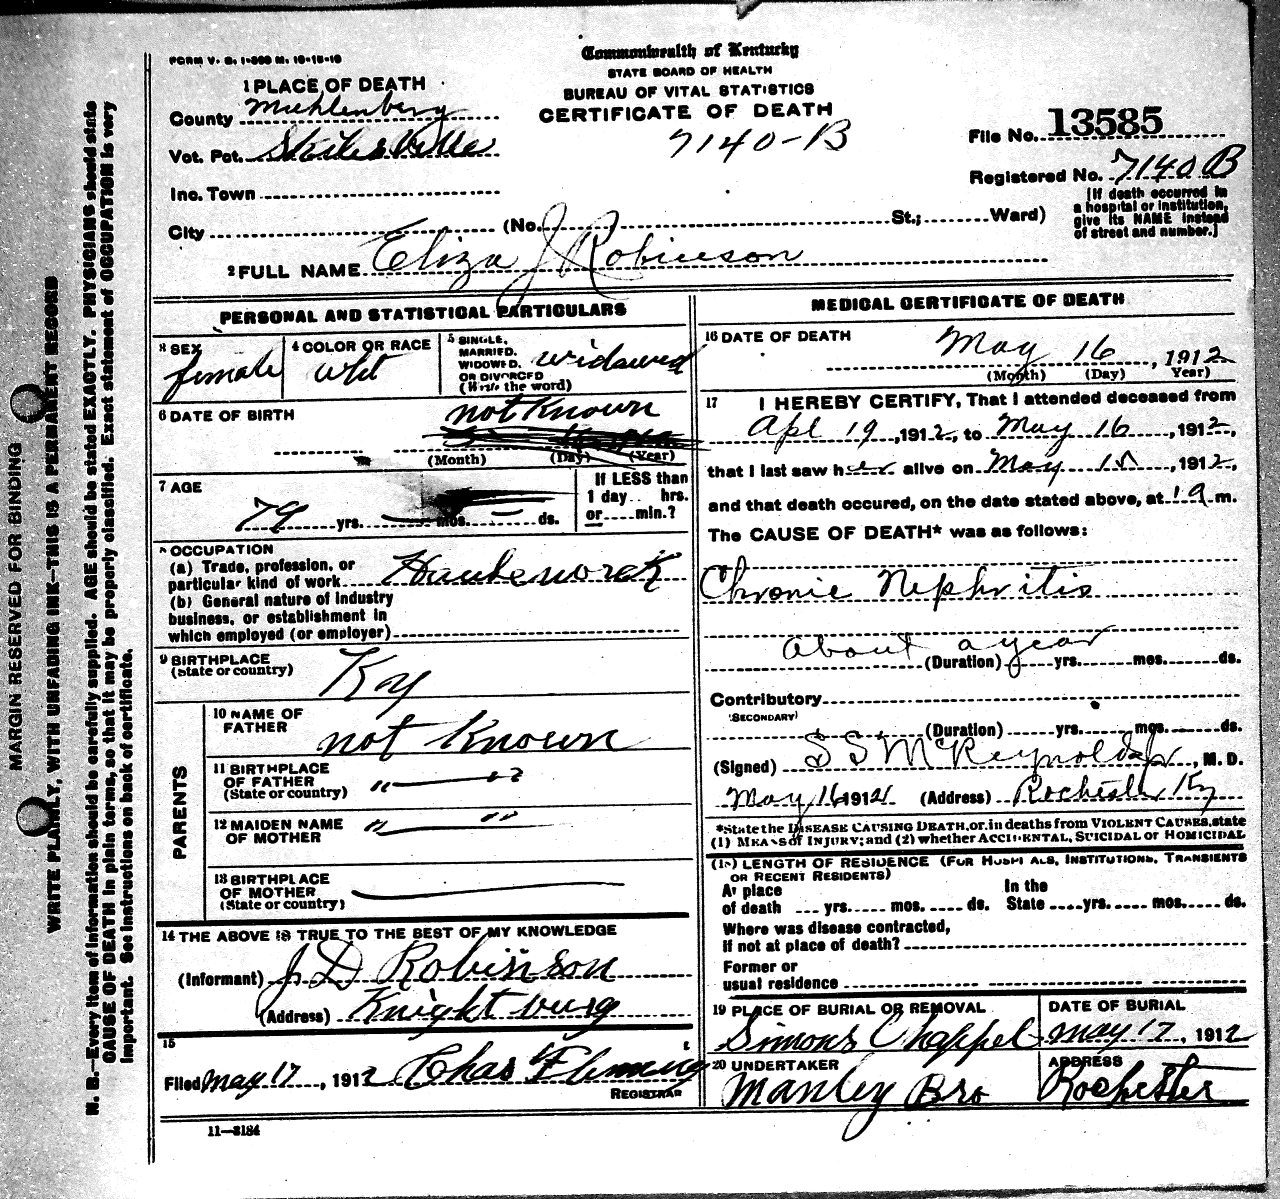 FORM V. S. 1-500 M. 10-15-10
Commonwealth of Kentucky
STATE BOARD OF HEALTH
BUREAU OF VITAL STATISTICS
CERTIFICATE OF DEATH
7140-B
1 PLACE OF DEATH
County Muhlenberg
Vot. Pct.
Inc. Town
City (No. St.; Ward)
File No. 13585
Registered No. 7140 B
[If death occurred in
a hospital or institution,
give its NAME instead
of street and number.]
2 FULL NAME Eliza J Robinson
PERSONAL AND STATISTICAL PARTICULARS
3 SEX
female
4 COLOR OR RACE
wht
5 SINGLE,
MARRIED,
WIDOWED,
OR DIVORCED
(Write the word)
widowed
6 DATE OF BIRTH
not Known
(Month) (Day) (Year)
7 AGE
79 yrs. mos. ds.
If LESS than
1 day hrs.
or min.?
8 OCCUPATION
(a) Trade, profession, or
particular kind of work
(b) General nature of industry
business, or establishment in
which employed (or employer)
9 BIRTHPLACE
(State or country)
Ky
PARENTS
10 NAME OF
FATHER
not Known
11 BIRTHPLACE
OF FATHER
(State or country)
" "
12 MAIDEN NAME
OF MOTHER
" "
13 BIRTHPLACE
OF MOTHER
(State or country)
14 THE ABOVE IS TRUE TO THE BEST OF MY KNOWLEDGE
(Informant) J D Robinson
(Address) Knightsburg
15
Filed May 17, 1912 Chas Fleming
REGISTRAR
11-3184
MEDICAL CERTIFICATE OF DEATH
16 DATE OF DEATH
May 16, 1912
(Month) (Day) Year)
17 I HEREBY CERTIFY, That I attended deceased from
Apl 19, 1912, to May 16, 1912,
that I last saw her alive on May 15, 1912,
and that death occured, on the date stated above, at 1 a m.
The CAUSE OF DEATH* was as follows:
Chronic Nephritis
About a year
(Duration) yrs. mos. ds.
Contributory
(SECONDARY)
(Duration) yrs. mos. ds.
(Signed) S S McReynolds Jr, M. D.
May 16 1912 (Address) Rochester Ky
*State the DISEASE CAUSING DEATH, or, in deaths from VIOLENT CAUSES, state
(1) MEANS OF INJURY; and (2) whether ACCIDENTAL, SUICIDAL or HOMICIDAL
(18) LENGTH OF RESIDENCE (FOR HOSPITALS, INSTITUTIONS, TRANSIENTS
OR RECENT RESIDENTS)
At place In the
of death yrs. mos. ds. State yrs. mos. ds.
Where was disease contracted,
if not at place of death?
Former or
usual residence
19 PLACE OF BURIAL OR REMOVAL
Simons Chappel
DATE OF BURIAL
May 17, 1912
20 UNDERTAKER
Manley Bro
ADDRESS
Rochester
MARGIN RESERVED FOR BINDING
WRITE PLAINLY, WITH UNFADING INK—THIS IS A PERMANENT RECORD
N. B.—Every item of information should be carefully supplied. AGE should be stated EXACTLY. PHYSICIANS should state
CAUSE OF DEATH in plain terms, so that it may be properly classified. Exact statement of OCCUPATION is very
important. See instructions on back of certificate.